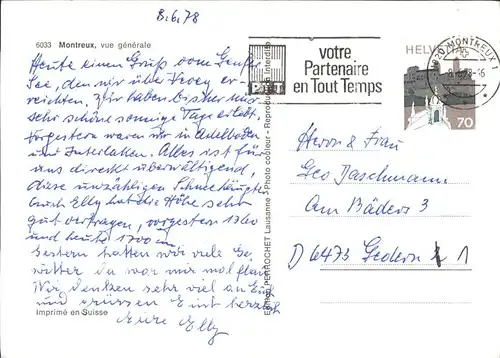 8.6.78
6033 Montreux, vue générale
Heute einen Gruß vom Genfer
See, den wir über Vevey er-
reichten. Wir haben bisher nur
sehr schöne sonnige Tage erlebt.
Vorgestern waren wir in Adelboden
und Interlaken. Alles ist für
uns direkt überwältigend,
diese unzähligen Schneehäupter
Auch Elly hat die Höhe sehr
gut vertragen, vorgestern 1360
und heute 1700 m
Gestern hatten wir viele Ge-
witter da war mir mal flau
Wir denken sehr viel an Euch
und grüssen Euch herzlich
Eure Elly
Imprimé en Suisse
Edition PERROCHET Lausanne - Photo couleur - Reproduction interdite
PTT
votre
Partenaire
en Tout Temps
MONTREUX 1
HELV
70
Herrn & Frau
Geo Taschmann
Am Bäders 3
D 6473 Gedern 1